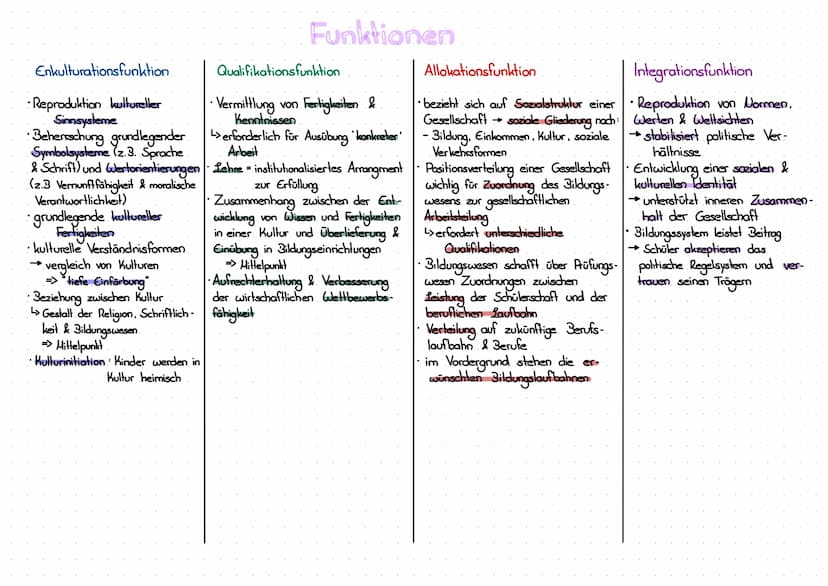 Funktionen
Enkulturationsfunktion
· Reproduktion kultureller
Sinnsysteme
· Beherrschung grundlegender
Symbolsysteme (z.B. Sprache
& Schrift) und Wertorientierungen
(z.B Vernunftfähigkeit & moralische
Verantwortlichkeit)
· grundlegende kultureller
Fertigkeiten
· kulturelle Verständnisformen
→ vergleich von Kulturen
⇒ "tiefe Einfärbung"
· Beziehung zwischen Kultur
↳ Gestalt der Religion, Schriftlich-
keit & Bildungswesen
⇒ Mittelpunkt
· Kulturinitiation: Kinder werden in
Kultur heimisch
Qualifikationsfunktion
· Vermittlung von Fertigkeiten &
Kenntnissen
↳ erforderlich für Ausübung 'konkreter'
Arbeit
· Lehre = institutionalisiertes Arrangment
zur Erfüllung
· Zusammenhang zwischen der Ent-
wicklung von Wissen und Fertigkeiten
in einer Kultur und Überlieferung &
Einübung in Bildungseinrichtungen
⇒ Mittelpunkt
· Aufrechterhaltung & Verbesserung
der wirtschaftlichen Wettbewerbs-
fähigkeit
Allokationsfunktion
· bezieht sich auf Sozialstruktur einer
Gesellschaft → soziale Gliederung nach:
- Bildung, Einkommen, Kultur, soziale
Verkehrsformen
· Positionsverteilung einer Gesellschaft
wichtig für Zuordnung des Bildungs-
wesens zur gesellschaftlichen
Arbeitsteilung
↳ erfordert unterschiedliche
Qualifikationen
· Bildungswesen schafft über Prüfungs-
wesen Zuordnungen zwischen
Leistung der Schülerschaft und der
beruflichen Laufbahn
· Verteilung auf zukünftige Berufs-
laufbahn & Berufe
· im Vordergrund stehen die er-
wünschten Bildungslaufbahnen
Integrationsfunktion
· Reproduktion von Normen,
Werten & Weltsichten
→ stabilisiert politische Ver-
hältnisse
· Entwicklung einer sozialen &
kulturellen Identität
→ unterstützt inneren Zusammen-
halt der Gesellschaft
· Bildungssystem leistet Beitrag
→ Schüler akzeptieren das
politische Regelsystem und ver-
trauen seinen Trägern